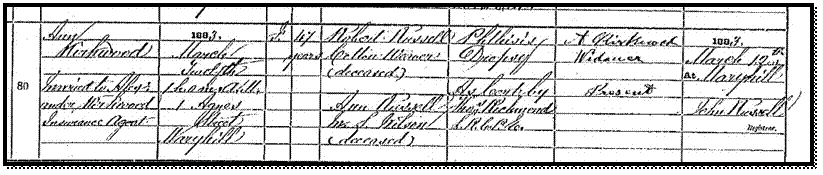 1
80
Ann Kirkwood
Married to Alexr
ander Kirkwood
Insurance Agent
1883.
March
Twelfth
1 h. a.m. Mill.
1 Agnes
Street
Maryhill
F.
47
years
Robert Russell
Cotton Weaver
(deceased)
Ann Russell
m.s. Wilson
(deceased)
Phthisis
Dropsy
As Cert by
Thos. Richmond
L.R.C.P. &c.
A Kirkwood
Widower
Present
1883,
March 12th
At Maryhill
John Russell
Registrar.